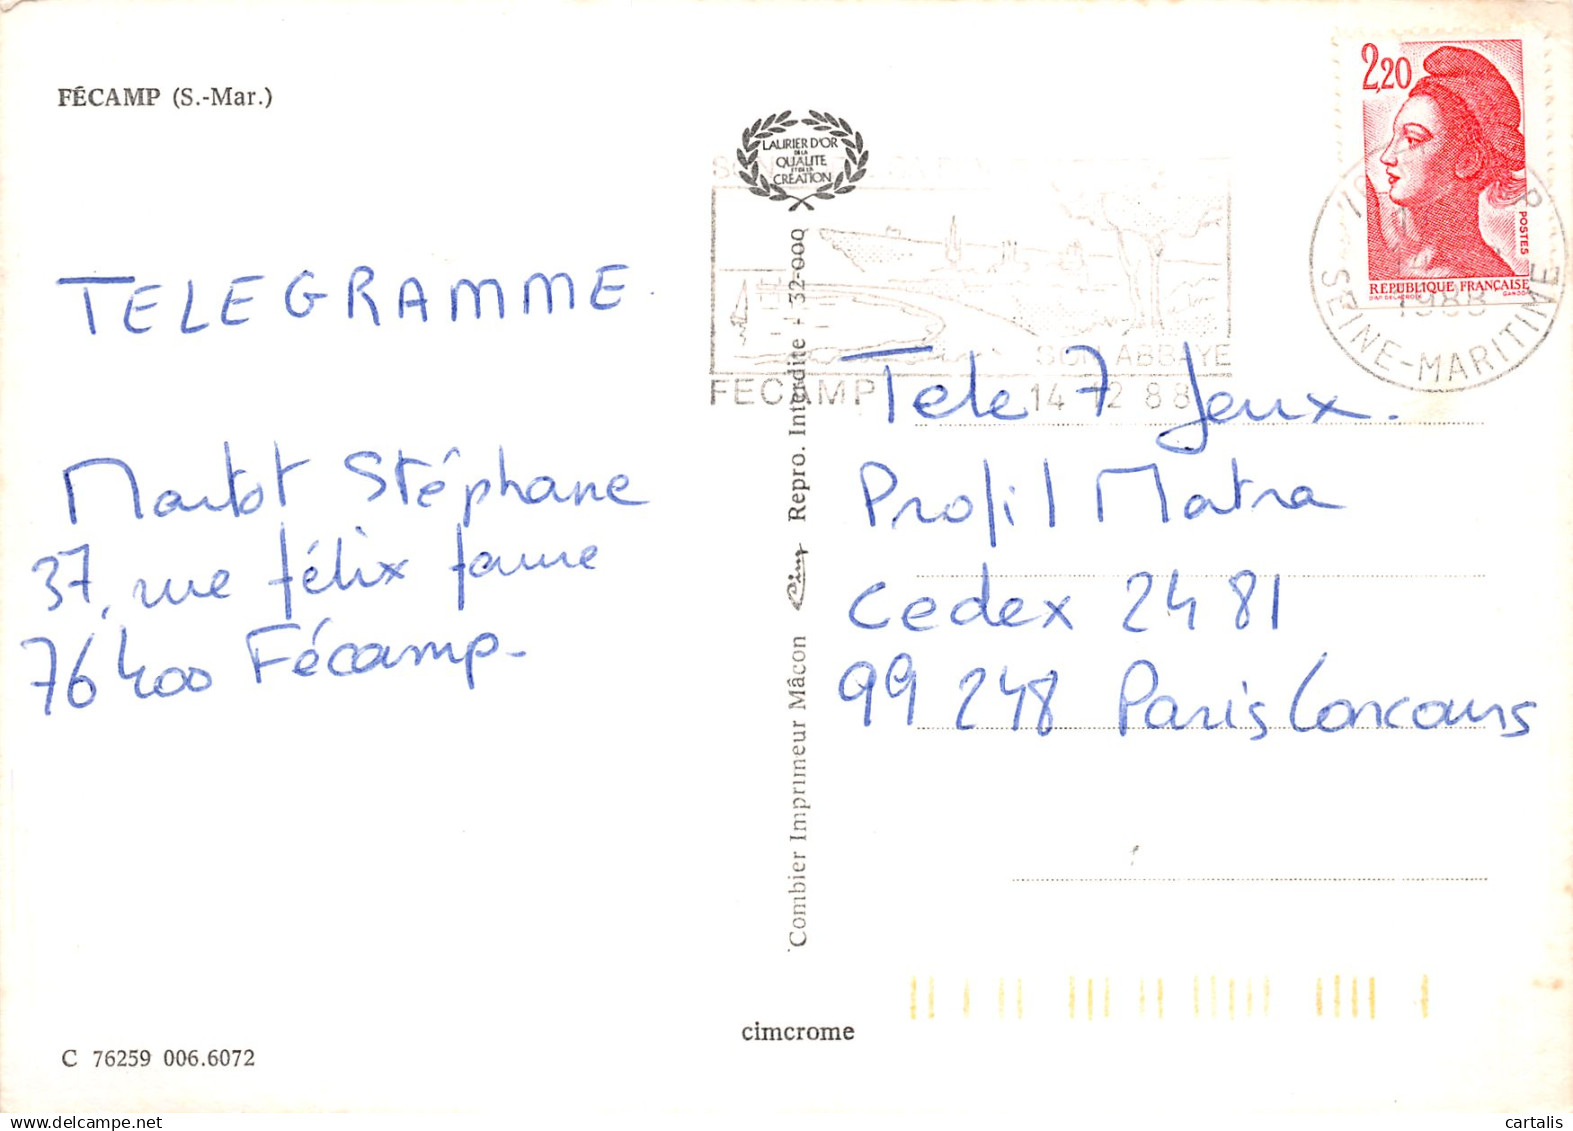 FÉCAMP (S.-Mar.)
TELEGRAMME
Martot Stéphane
37, rue félix faure
76400 Fécamp.
C 76259 006.6072
LAURIER D'OR
DE LA
QUALITÉ
ET DE LA
CRÉATION
SON ABBAYE
FECAMP 14 12 88
Combier Imprimeur Mâcon Cim Repro. Interdite - 32-000
cimcrome
2,20
POSTES
RÉPUBLIQUE FRANÇAISE
D'AP. DELACROIX GANDON
1988
SEINE-MARITIME
Tele 7 Jeux.
Profil Matra
Cedex 2481
99 248 Paris Concours
cartalis